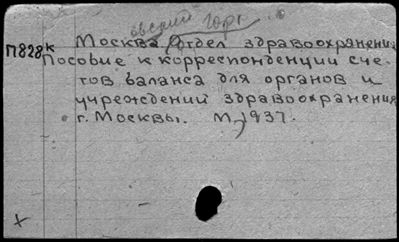 горг.
П828к Москва. Отдел здравоохранения
Пособие к корреспонденции сче-
тов баланса для органов и
учреждений здравоохранения
г. Москвы. М., 1937.
х